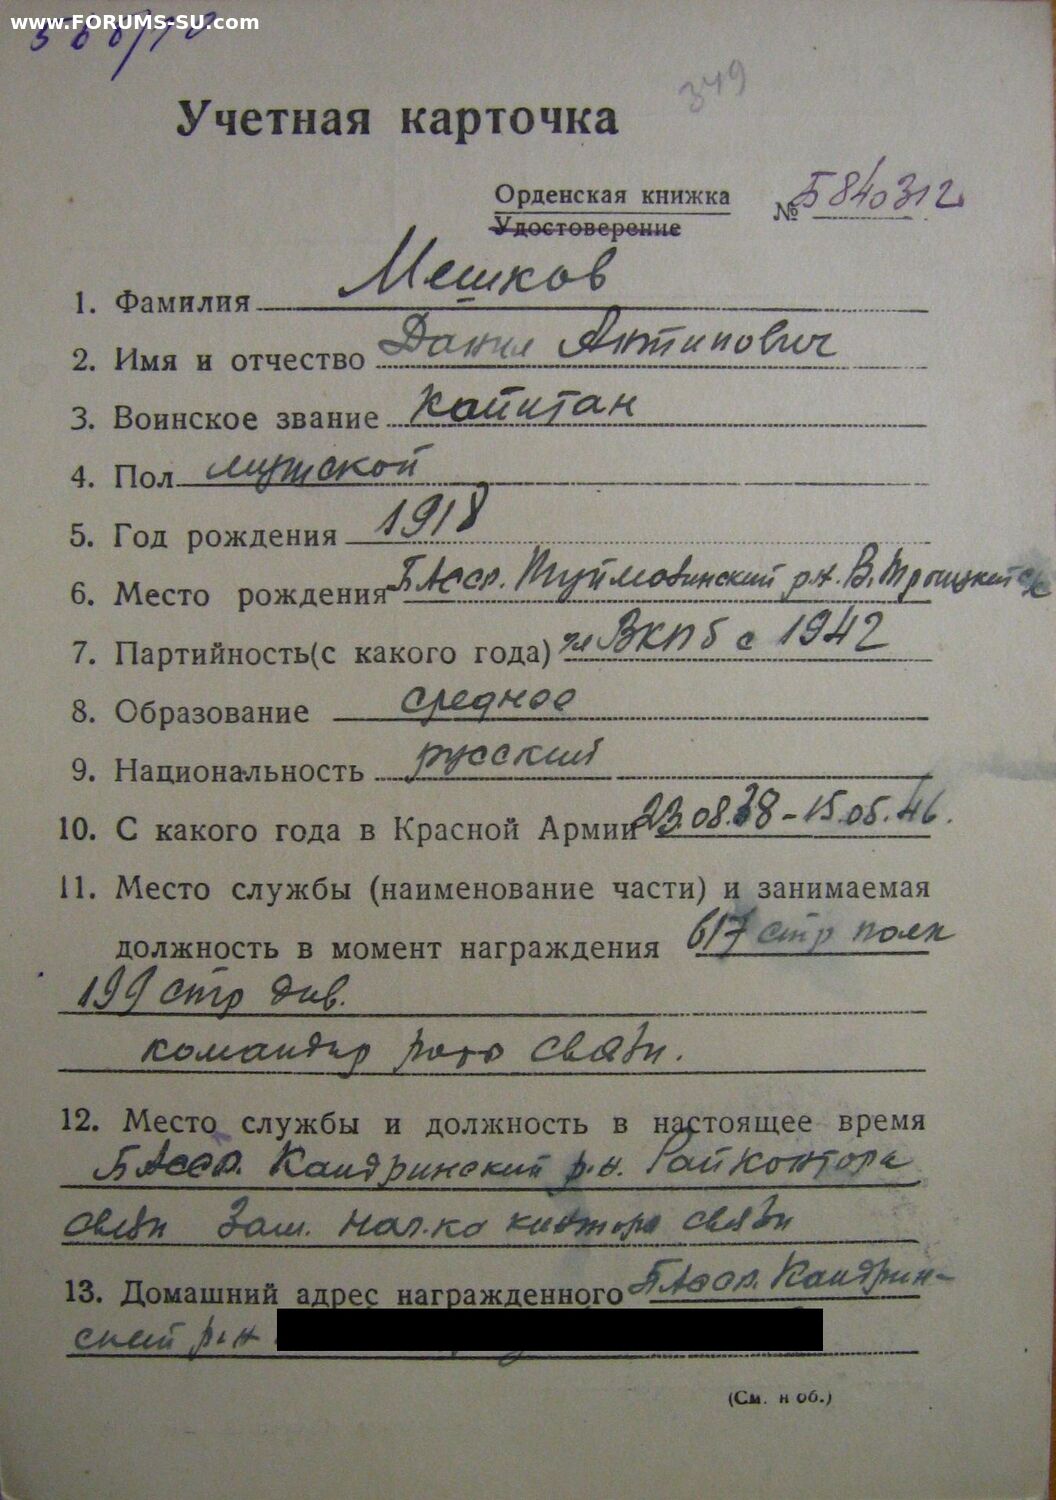 www.FORUMS-SU.com
349
Учетная карточка
Орденская книжка
№ Б 840312
Удостоверение
1. Фамилия Мешков
2. Имя и отчество Данил Антипович
3. Воинское звание капитан
4. Пол мужской
5. Год рождения 1918
6. Место рождения БАССР. Туймазинский р.н. В. Троицкий
7. Партийность (с какого года) чл ВКПб с 1942
8. Образование среднее
9. Национальность русский
10. С какого года в Красной Армии 23.08.38 - 15.05.46.
11. Место службы (наименование части) и занимаемая
должность в момент награждения 617 стр полк
199 стр див.
командир роты связи.
12. Место службы и должность в настоящее время
БАССР. Кандринский р.н. Райконтора
связи Зам. нач.ка контора связи
13. Домашний адрес награжденного БАССР. Кандрин-
ский р-н
(См. н об.)